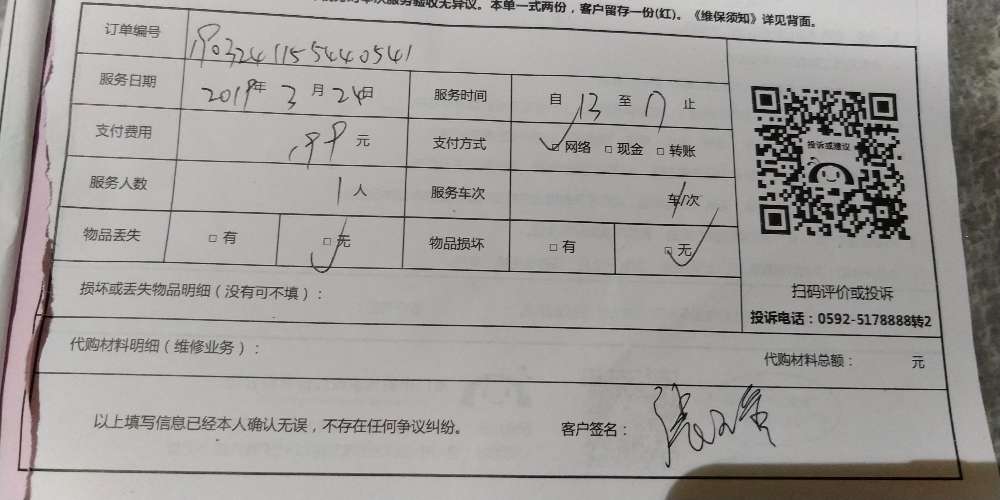 次服务验收无异议。本单一式两份，客户留存一份(红)。《维保须知》详见背面。
订单编号 190324115544 0541
服务日期 2019年 3月 24日 服务时间 自 13 至 17 止
支付费用 199 元 支付方式 □网络 □现金 □转账
服务人数 1人 服务车次 车/次
物品丢失 □有 □无 物品损坏 □有 □无
投诉或建议
扫码评价或投诉
投诉电话：0592-5178888转2
损坏或丢失物品明细（没有可不填）：
代购材料明细（维修业务）： 代购材料总额： 元
以上填写信息已经本人确认无误，不存在任何争议纠纷。 客户签名：